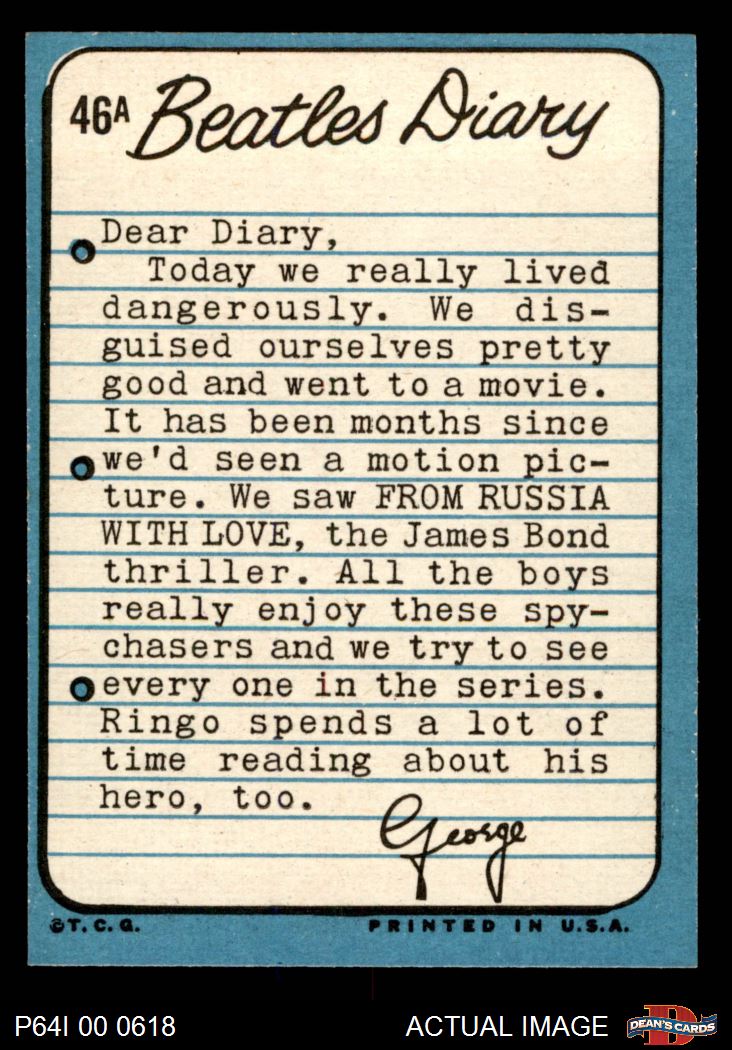 46A Beatles Diary
Dear Diary,
Today we really lived
dangerously. We dis-
guised ourselves pretty
good and went to a movie.
It has been months since
we'd seen a motion pic-
ture. We saw FROM RUSSIA
WITH LOVE, the James Bond
thriller. All the boys
really enjoy these spy-
chasers and we try to see
every one in the series.
Ringo spends a lot of
time reading about his
hero, too.
George
©T.C.G. PRINTED IN U.S.A.
P64I 00 0618 ACTUAL IMAGE D DEAN'S CARDS